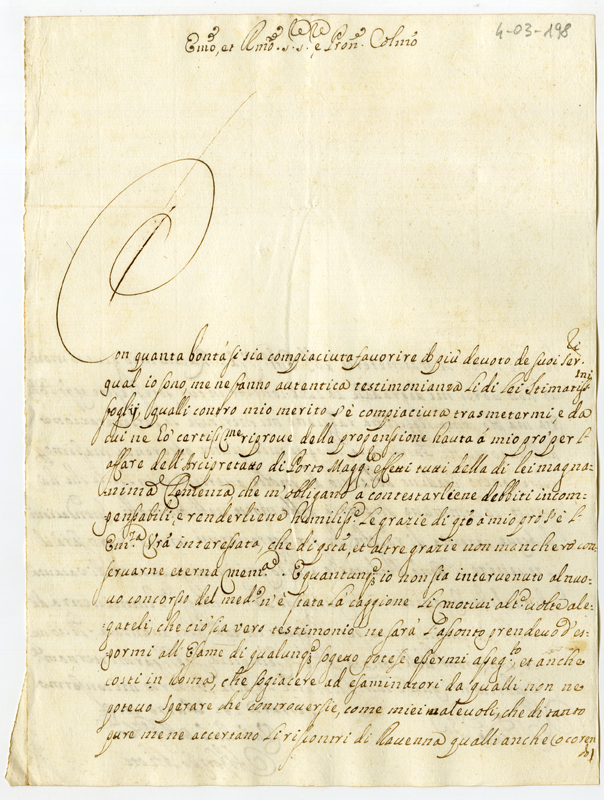 4-03-198
Emo, et Rmo. s.r s.re, e Pron. Colmo
Con quanta bontà si sia compiaciuta favorire il più devoto de suoi Ser.ri
qual io sono, me ne fanno autentica testimonianza Li di Lei Stimatiss.mi
foglij, qualli contro mio merito s'è compiaciuta trasmetermi, e da
cui ne hò certisi.me riprove della propensione hauta à mio prò per l'
affare dell'Arcipretato di Porto Magg.re effetti tutti della di lei magna-
nima Clemenza, che m'obligano à contestarliene debbiti incom-
pensabili, e renderliene humiliss.e Le grazie di q.to à mio prò s'è l'
Em.za Vra interessata, che di q.sta, et altre grazie non mancherò con-
servarne eterna mem.a. E quantunq. io non sia intervenuto al nuo-
vo concorso del med.o n'è stata La caggione Li motivi alt.e volte ale-
gateli, che ciò sia vero testimonio ne sarà l'asonto prendevo d'es-
pormi all'Esame di qualunq. sogetto potese essermi aseg.to, et anche
costì in Roma, che sogiacere ad esaminatori da qualli non ne
potevo sperare che controversie, come miei malevoli, che di tanto
pure me ne accertano Li riscontri di Ravenna qualli anche